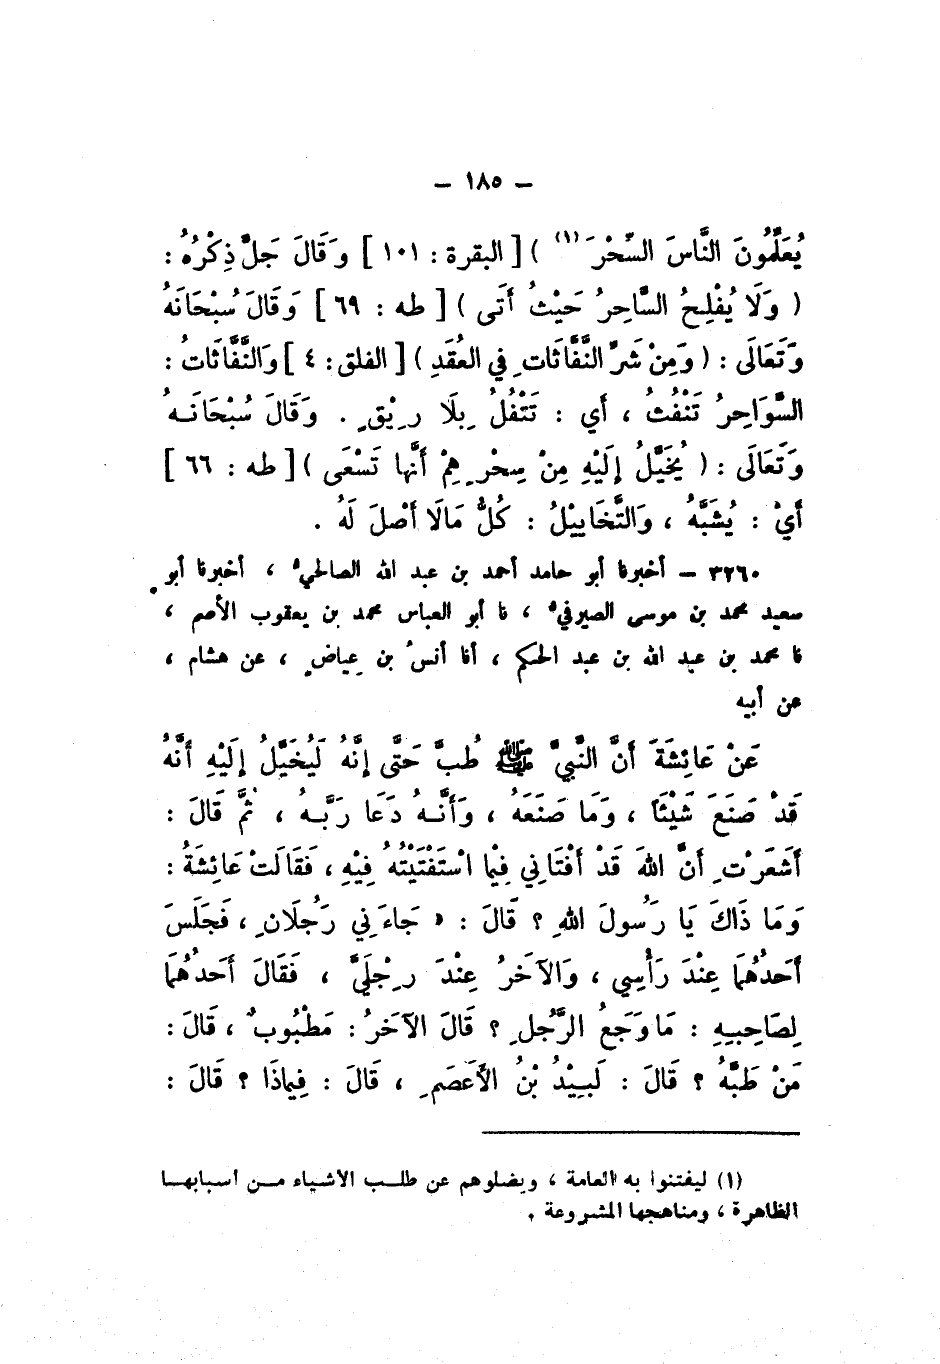 – ١٨٥ –
يُعَلِّمُونَ النَّاسَ السِّحْرَ (١) ) [ البقرة : ١٠١ ] وَقَالَ جَلَّ ذِكْرُهُ :
( وَلَا يُفْلِحُ السَّاحِرُ حَيْثُ أَتَى ) [ طه : ٦٩ ] وَقَالَ سُبْحَانَهُ
وَتَعَالَى : ( وَمِنْ شَرِّ النَّفَّاثَاتِ فِي العُقَدِ ) [ الفلق : ٤ ] وَالنَّفَّاثَاتُ :
السَّوَاحِرُ تَنْفُثُ ، أَي : تَتْفُلُ بِلَا رِيْقٍ . وَقَالَ سُبْحَانَـهُ
وَتَعَالَى : ( يُخَيَّلُ إِلَيْهِ مِنْ سِحْرِهِمْ أَنَّهَا تَسْعَى ) [ طه : ٦٦ ]
أَيْ : يُشَبَّهُ ، وَالتَّخَايِيْلُ : كُلُّ مَالَا أَصْلَ لَهُ .
٣٢٦٠ – أخبرنا أبو حامد أحمد بن عبد الله الصالحيُّ ، أخبرنا أبو
سعيد محمد بن موسى الصيرفيُّ ، نا أبو العباس محمد بن يعقوب الأصم ،
نا محمد بن عبد الله بن عبد الحكم ، أنا أنسُ بن عِياضٍ ، عن هشام ،
عن أبيه
عَنْ عَائِشَةَ أَنَّ النَّبِيَّ ﷺ طُبَّ حَتَّى إِنَّهُ لَيُخَيَّلُ إِلَيْهِ أَنَّهُ
قَدْ صَنَعَ شَيْئَاً ، وَمَا صَنَعَهُ ، وَأَنَّـهُ دَعَا رَبَّـهُ ، ثُمَّ قَالَ :
أَشَعَرْتِ أَنَّ اللهَ قَدْ أَفْتَانِي فِيْمَا اسْتَفْتَيْتُهُ فِيْهِ ، فَقَالَتْ عَائِشَةُ :
وَمَا ذَاكَ يَا رَسُولَ اللهِ ؟ قَالَ : « جَاءَنِي رَجُلَانِ ، فَجَلَسَ
أَحَدُهُمَا عِنْدَ رَأْسِي ، وَالآخَرُ عِنْدَ رِجْلَيَّ ، فَقَالَ أَحَدُهُمَا
لِصَاحِبِهِ : مَا وَجَعُ الرَّجُلِ ؟ قَالَ الآخَرُ : مَطْبُوبٌ ، قَالَ :
مَنْ طَبَّهُ ؟ قَالَ : لَبِيْدُ بْنُ الأَعْصَمِ ، قَالَ : فِيْمَاذَا ؟ قَالَ :
(١) ليفتنوا به العامة ، ويضلوهم عن طلـب الأشياء مـن أسبابهـا
الظاهرة ، ومناهجها المشروعة .